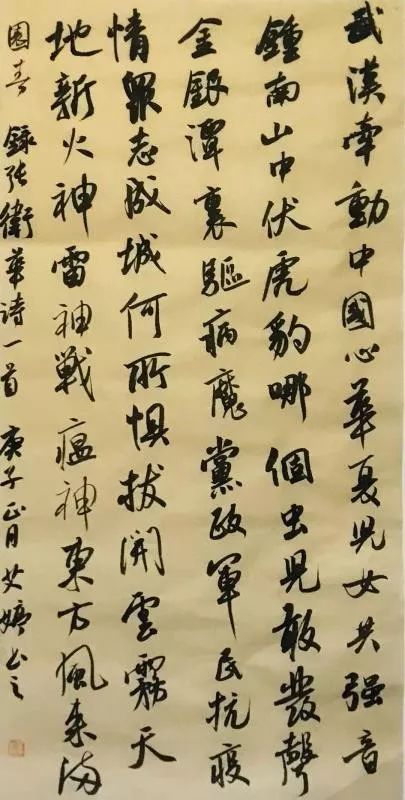 武漢牽動中國心華夏兒女共强音
鍾南山中伏虎豹哪個虫兒敢發聲
金銀潭裏驅病魔黨政軍民抗疫
情眾志成城何所惧拔開雲霧天
地新火神雷神戰瘟神東方風来满
園春 錄张衛華诗一首 庚子正月 艾婷书之